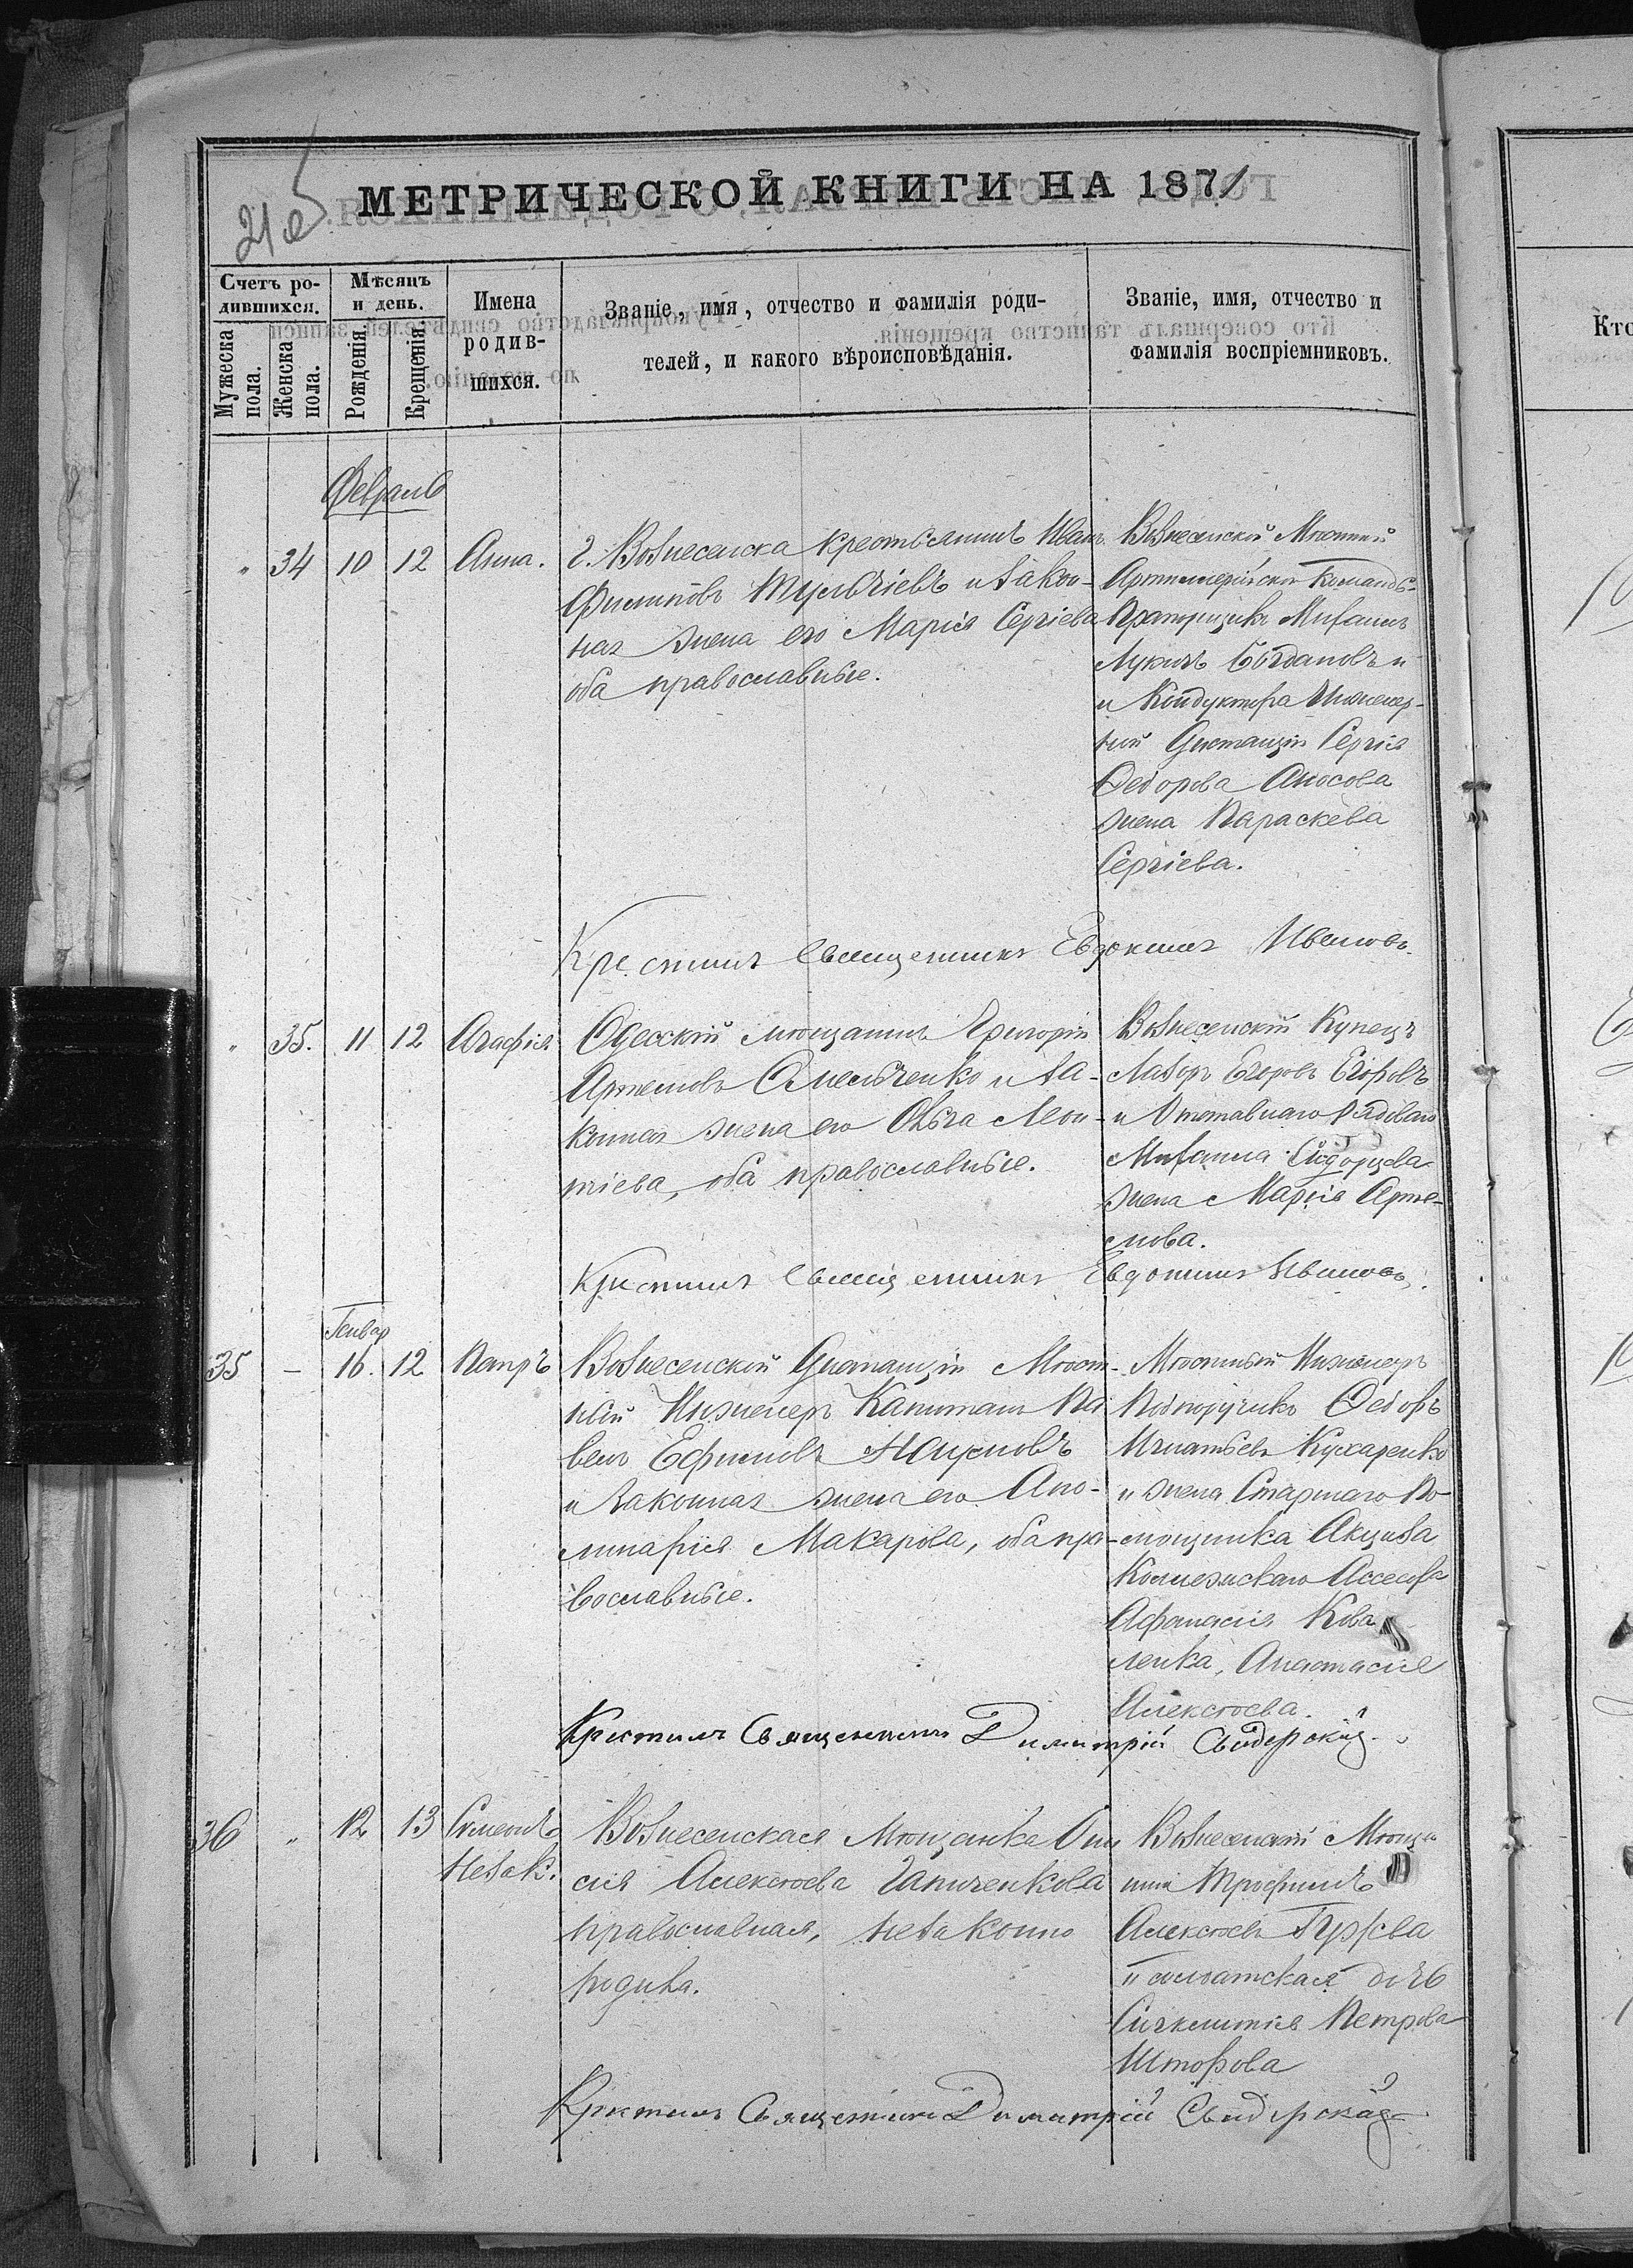 МЕТРИЧЕСКОЙ КНИГИ НА 1871
Счетъ ро-
дившихся.
Мужеска
пола.
Женска
пола.
Мѣсяцъ
и день.
Рожденія.
Крещенія.
Имена
родив-
шихся.
Званіе, имя, отчество и фамилія роди-
телей, и какого вѣроисповѣданія.
Званіе, имя, отчество и
фамилія воспріемниковъ.
Кто
Февраль
" 34 10 12 Анна.
г. Вознесенска крестьянинъ Иванъ
Филиповъ и закон-
ная жена его Марія Сергіева
оба православные.
Вознесенской Мѣстной
Артиллерійской Команды
Михаилъ
Лукинъ Богдановъ и
и Кондуктора Инженер-
ной Дистанціи Сергія
Федорова Аносова
жена Параскева
Сергіева.
Крестилъ Священникъ Евдокимъ Ивановъ.
" 35. 11 12 Агафія
Одесскій мѣщанинъ Григорій
Артемовъ Омельченко и за-
конная жена его Ольга Леон-
тіева, оба православные.
Вознесенскій Купецъ
Лазорь Егоровъ Егоровъ
и Отставнаго рядоваго
Михаила
жена Марія Арте-
мова.
Крестилъ Священникъ Евдокимъ Ивановъ.
Генвар
35 - 16. 12 Петръ
Вознесенской Дистанціи Мѣст-
ный Инженеръ Капитанъ Па
велъ Ефимовъ Наумовъ
и законная жена его Апо-
линарія Макарова, оба пра-
вославные.
Мѣстный Инженеръ
Подпоручикъ Федоръ
Игнатьевъ Кухаренко
и жена Старшаго По-
мощника Акциза
Коллежскаго
Афанасія Кова
ленка, Анастасія
Алексѣева.
Крестилъ Священникъ Димитрій Свидерскій
36 " 12 13 Симеонъ
незак.
Вознесенская Мѣщанка Ани
сія Алексѣева Гапиченкова
православная, незаконно
родила.
Вознесенскій Мѣща
нинъ Трофимъ
Алексѣевъ
и солдатская дочь
Синклитія Петрова
Шторова
Крестилъ Священникъ Димитрій Свидерскій